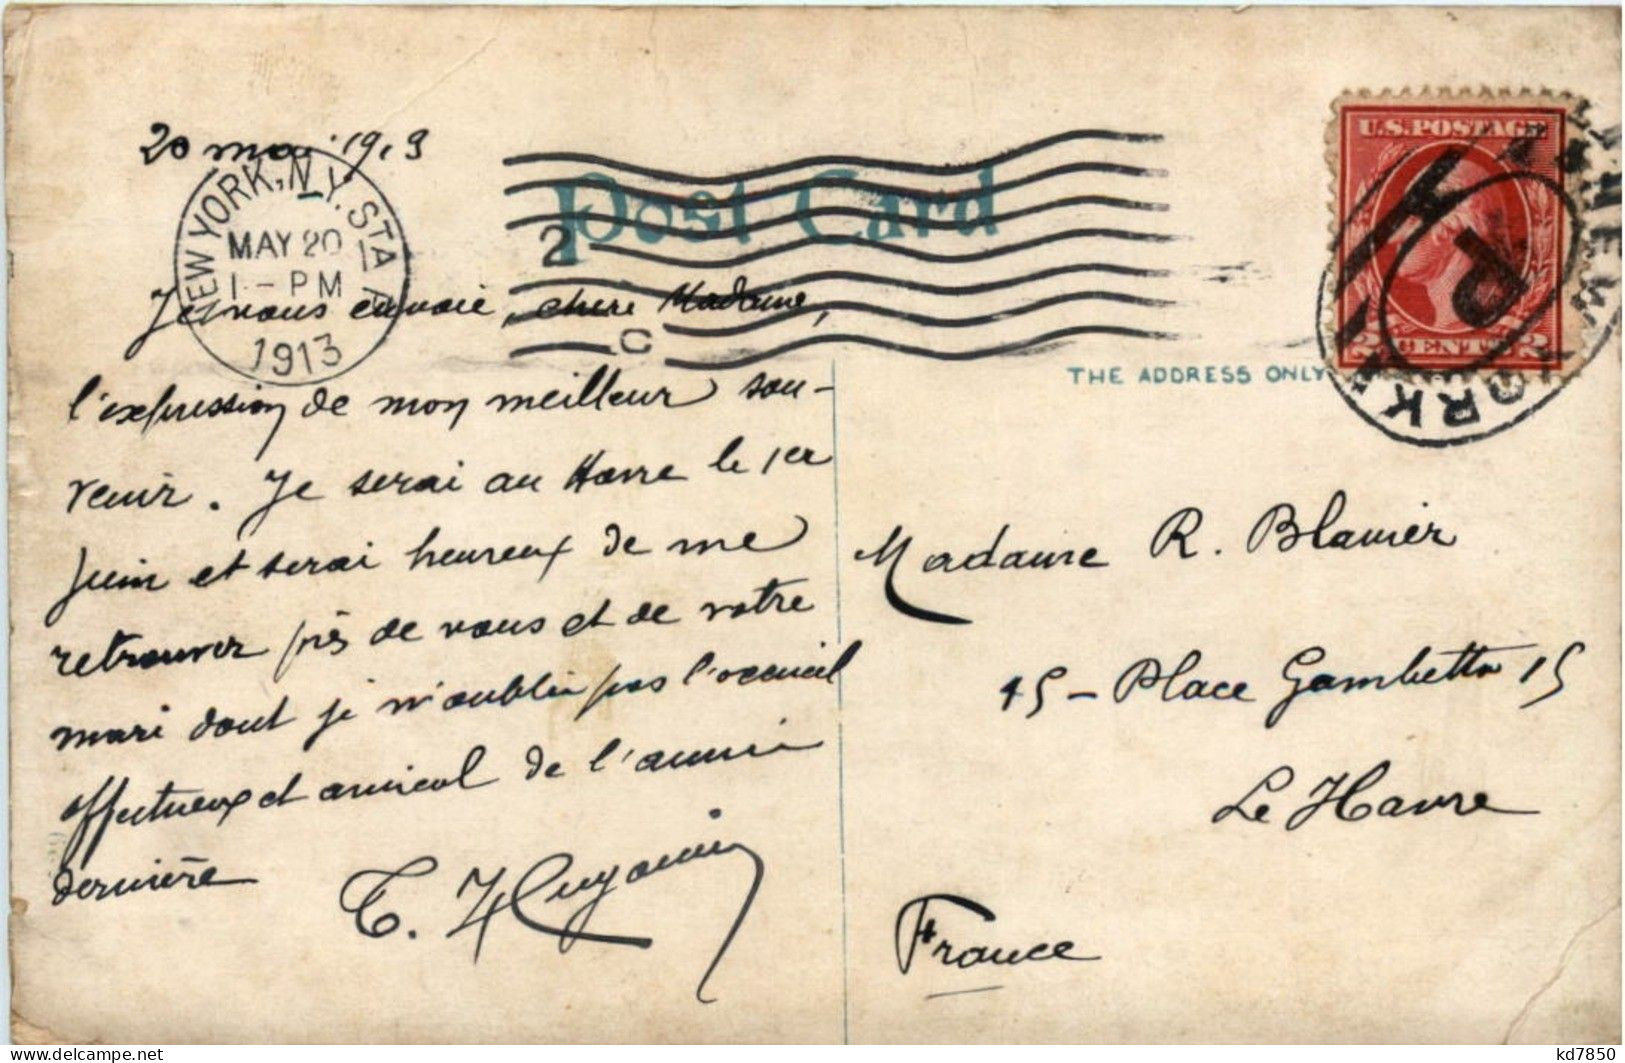 20 mai 1913
NEW YORK, N.Y. STA A
MAY 20
1-PM
1913
Post Card
2
C
U.S. POSTAGE
2 CENTS 2
NEW YORK
P
THE ADDRESS ONLY
Je vous envoie, chère Madame,
l'expression de mon meilleur sou-
venir. Je serai au Havre le 1er
juin et serai heureux de me
retrouver près de vous et de votre
mari dont je n'oublie pas l'accueil
affectueux et amical de l'année
dernière
Madame R. Blanier
15 - Place Gambetta 15
Le Havre
France
kd7850